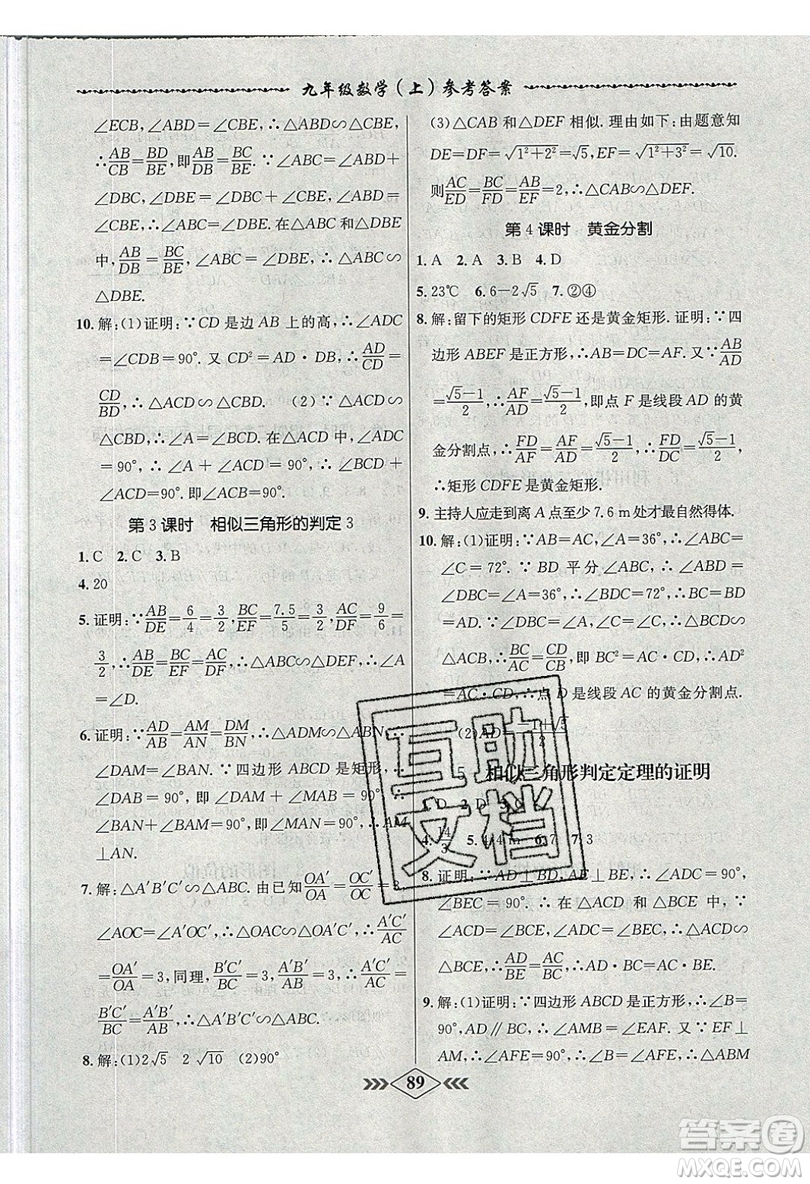 九年级数学(上)参考答案
∠ECB,∠ABD=∠CBE,∴△ABD∽△CBE,
∴AB/CB=BD/BE,即AB/BD=BC/BE.∵∠ABC=∠ABD+
∠DBC,∠DBE=∠DBC+∠CBE,∠ABD=
∠CBE,∴∠ABC=∠DBE.在△ABC和△DBE
中,∵AB/DB=BC/BE,∠ABC=∠DBE,∴△ABC∽
△DBE.
10.解:(1)证明:∵CD是边AB上的高,∴∠ADC
=∠CDB=90°.又CD²=AD·BD,∴AD/CD=
CD/BD,∴△ACD∽△CBD. (2)∵△ACD∽
△CBD,∴∠A=∠BCD.在△ACD中,∠ADC
=90°,∴∠A+∠ACD=90°,∴∠BCD+
∠ACD=90°.即∠ACB=90°.
第3课时 相似三角形的判定3
1.C 2.C 3.B
4.20
5.证明:∵AB/DE=6/4=3/2,BC/EF=7.5/5=3/2,AC/DF=9/6=
3/2,∴AB/DE=BC/EF=AC/DF,∴△ABC∽△DEF,∴∠A=
∠D.
6.证明:∵AD/AB=AM/AN=DM/BN,∴△ADM∽△ABN,∴
∠DAM=∠BAN.∵四边形ABCD是矩形,∴
∠DAB=90°,即∠DAM+∠MAB=90°,∴
∠BAN+∠BAM=90°,即∠MAN=90°,∴AM
⊥AN.
7.解:△A′B′C′∽△ABC.由已知OA′/OA=OC′/OC=3,
∠AOC=∠A′OC′,∴△AOC∽△A′OC′,∴A′C′/AC
=OA′/OA=3,同理,B′C′/BC=3,A′B′/AB=3,∴A′C′/AC=A′B′/AB=
B′C′/BC=3,∴△A′B′C′∽△ABC.
8.解:(1)2√5 2√10 (2)90°
(3)△CAB和△DEF相似.理由如下:由题意知
DE=DF=√(1²+2²)=√5,EF=√(1²+3²)=√10.
则AC/ED=BC/FD=AB/EF=2,∴△CAB∽△DEF.
第4课时 黄金分割
1.A 2.A 3.B 4.D
5.23℃ 6.6-2√5 7.②④
8.解:留下的矩形CDFE还是黄金矩形.证明:∵四
边形ABEF是正方形,∴AB=DC=AF.又∵AB/AD=
(√5-1)/2,∴AF/AD=(√5-1)/2,即点F是线段AD的黄
金分割点,∴FD/AF=AF/AD=(√5-1)/2,∴FD/DC=(√5-1)/2,
∴矩形CDFE是黄金矩形.
9.主持人应走到离A点至少7.6m处才最自然得体.
10.解:(1)证明:∵AB=AC,∠A=36°,∴∠ABC=
∠C=72°.∵BD平分∠ABC,∴∠ABD=
∠DBC=36°,∴∠BDC=∠C=72°,∴BC=BD
=AD.∵∠DBC=∠A,∠C=∠C,∴△CBD∽
△CAB,∴BC/AC=CD/CB,即BC²=AC·CD,∴AD²
=AC·CD,∴点D是线段AC的黄金分割点.
相似三角形判定定理的证明
8.证明:∵AD⊥BD,AE⊥BE,∴∠ADC=90°,
∠BEC=90°.∴在△ACD和△BCE中,∵
∠ACD=∠BCE,∠ADC=∠BEC=90°,∴
△ACD∽△BCE,∴AD/BE=AC/BC,∴AD·BC=AC·BE.
9.解:(1)证明:∵四边形ABCD是正方形,∴∠B=
90°,AD∥BC,∴∠AMB=∠EAF.又∵EF⊥
AM,∴∠AFE=90°,∴∠B=∠AFE,∴△ABM
89
互助
文档
答案圈
MXQE.COM